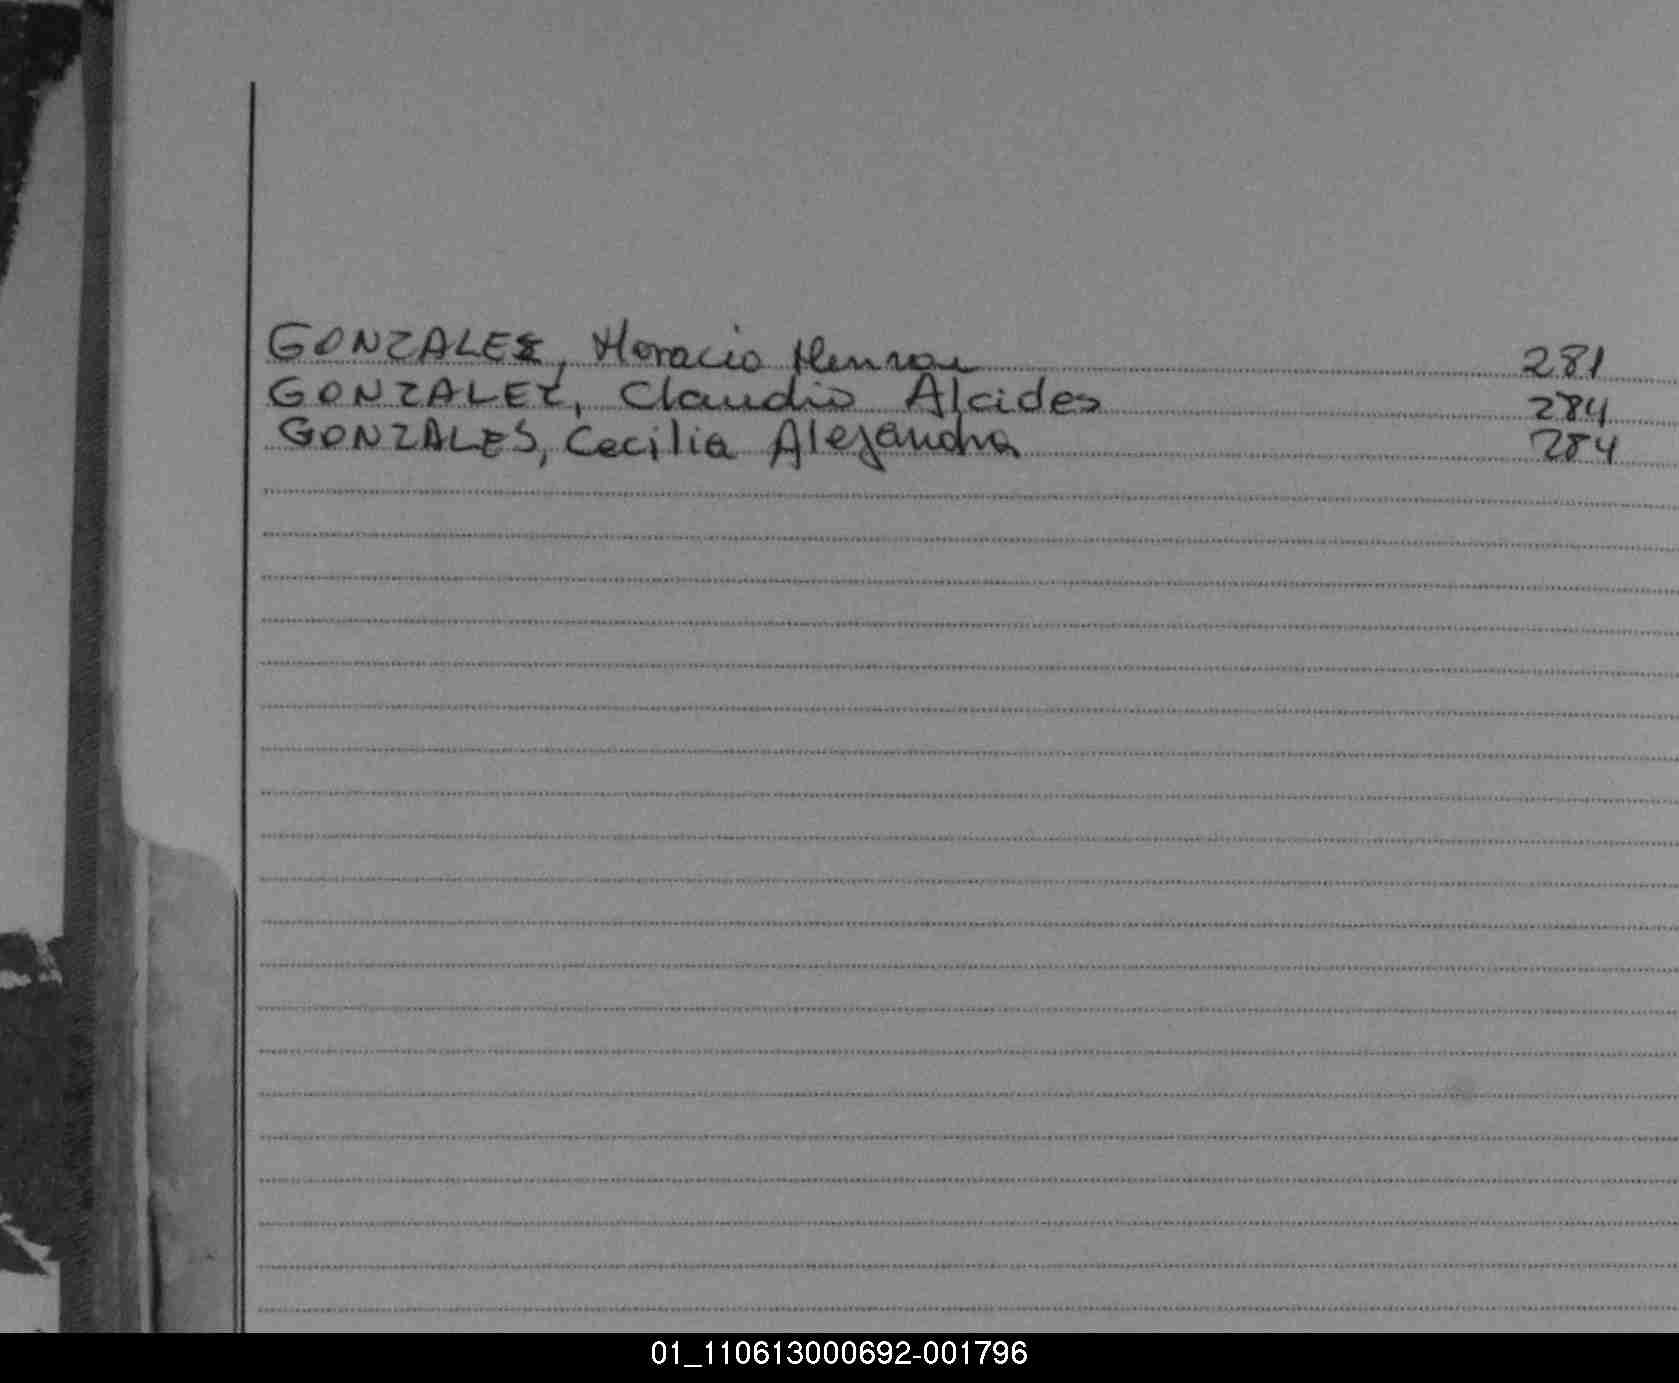 GONZALEZ, Horacio 281
GONZALEZ, Claudio Alcides 284
GONZALES, Cecilia Alejandra 284
01_110613000692-001796